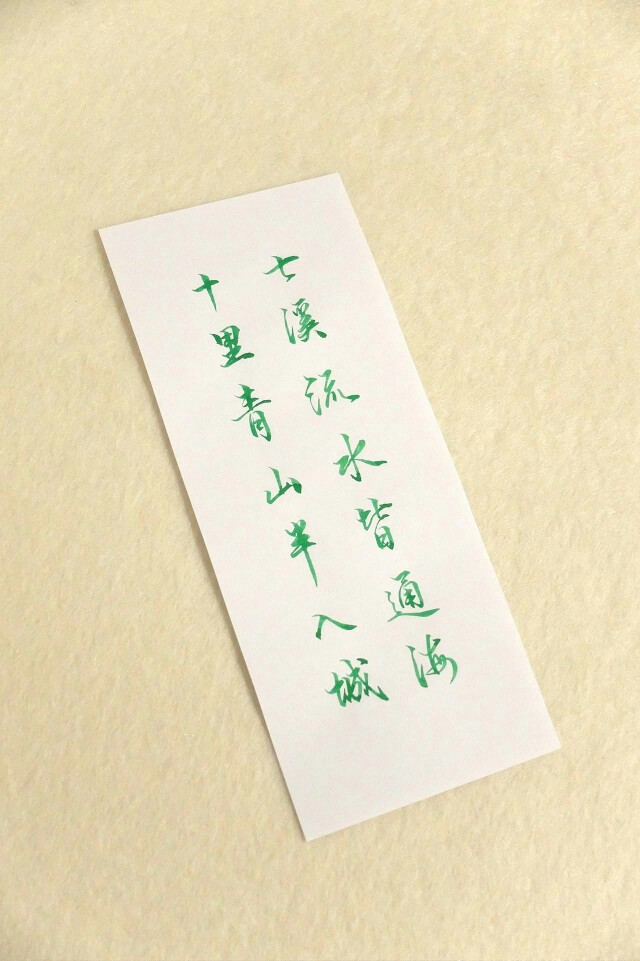 七溪流水皆通海
十里青山半入城